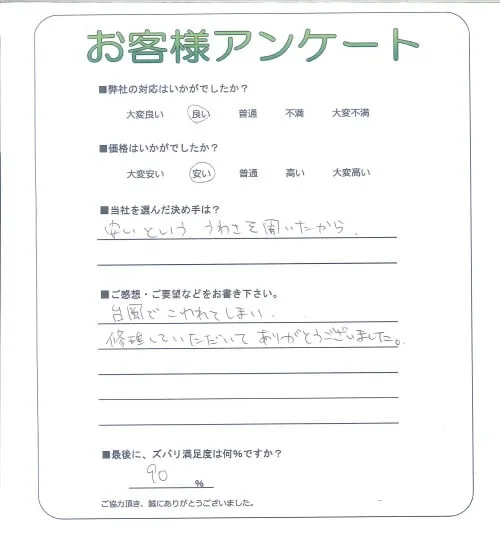 お客様アンケート
■弊社の対応はいかがでしたか？
大変良い 良い 普通 不満 大変不満
■価格はいかがでしたか？
大変安い 安い 普通 高い 大変高い
■当社を選んだ決め手は？
安いという、うわさを聞いたから。
■ご感想・ご要望などをお書き下さい。
台風でこわれてしまい、
修理していただいてありがとうございました。
■最後に、ズバリ満足度は何%ですか？
90 %
ご協力頂き、誠にありがとうございました。